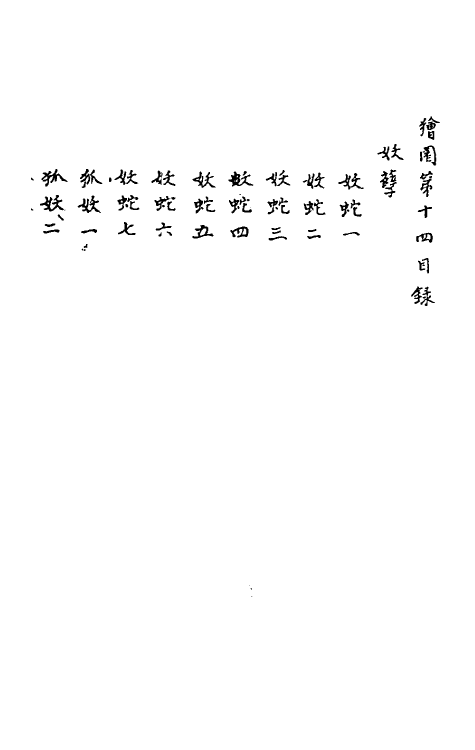 獪園第十四目録
妖孽
妖蛇一
妖蛇二
妖蛇三
妖蛇四
妖蛇五
妖蛇六
妖蛇七
狐妖一
狐妖二